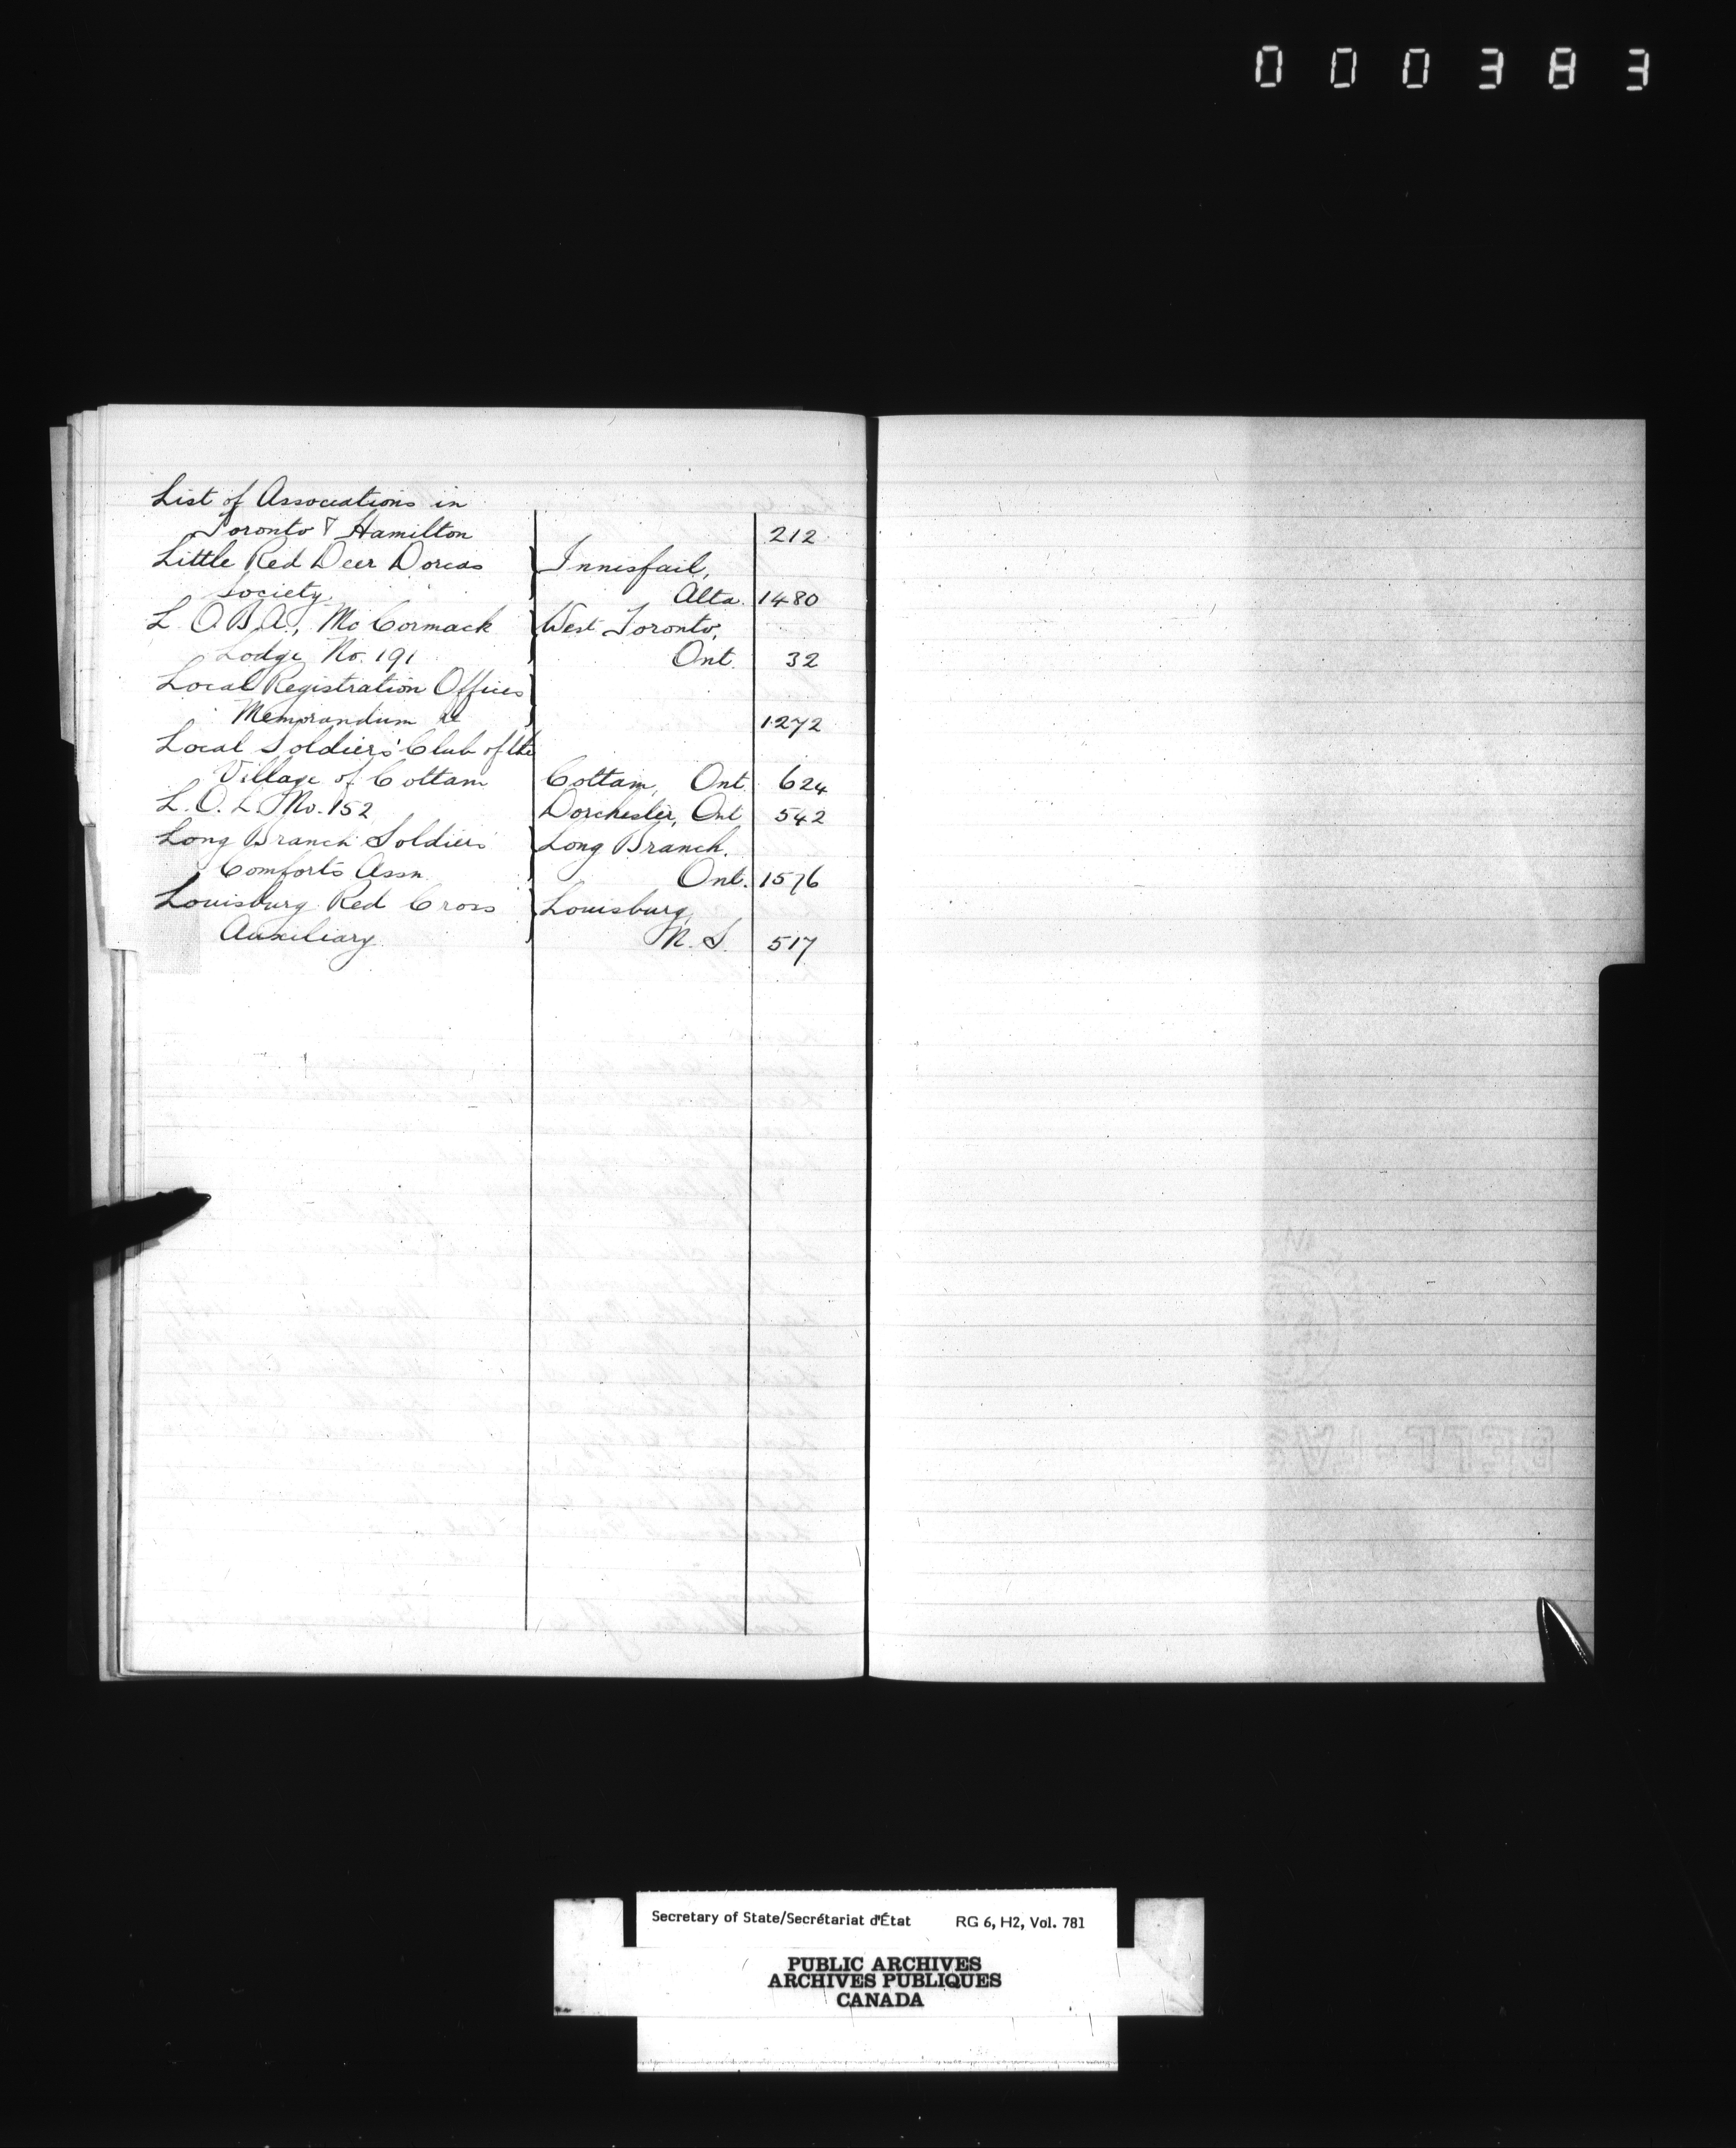 000383
List of Associations in
Toronto & Hamilton 212
Little Red Deer Dorcas } Innisfail,
Society. Alta. 1480
L.O.B.A., McCormack } West Toronto,
Lodge No. 191 Ont. 32
Local Registration Offices }
Memorandum re 1272
Local Soldiers' Club of the
Village of Cottam Cottam, Ont. 624
L.O.L. No. 152 Dorchester, Ont 542
Long Branch Soldiers' } Long Branch.
Comforts Assn. Ont. 1576
Louisburg Red Cross } Louisburg,
Auxiliary. N.S. 517
Secretary of State/Secrétariat d'État RG 6, H2, Vol. 781
PUBLIC ARCHIVES
ARCHIVES PUBLIQUES
CANADA